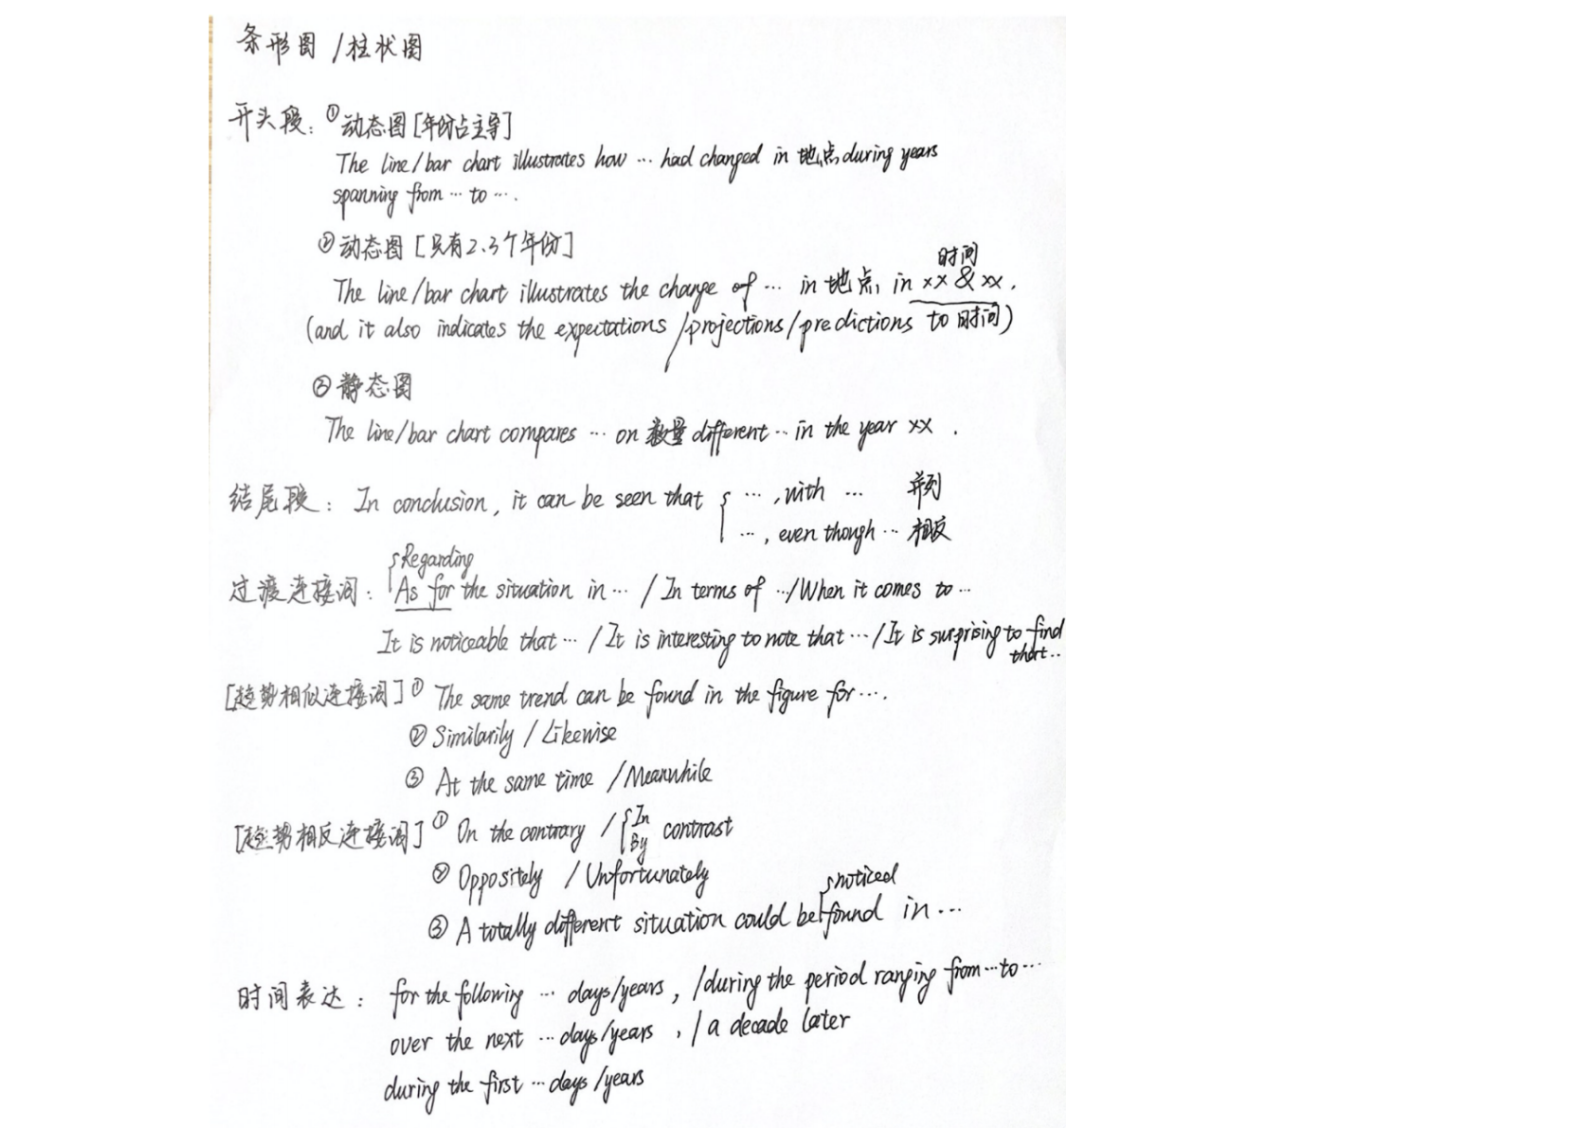 条形图 /柱状图
开头段：①动态图[年份占主导]
The line/bar chart illustrates how … had changed in 地点 during years
spanning from … to ….
②动态图 [只有2.3个年份]
时间
The line/bar chart illustrates the change of … in 地点 in xx & xx.
(and it also indicates the expectations /projections/predictions to 时间)
③静态图
The line/bar chart compares … on 数量 different … in the year xx .
结尾段：In conclusion, it can be seen that { …, with … 并列
…, even though … 相反
{Regarding
过渡连接词：As for the situation in … / In terms of …/When it comes to …
It is noticeable that … / It is interesting to note that … /It is surprising to find
that..
[趋势相似连接词] ① The same trend can be found in the figure for ….
② Similarily / Likewise
③ At the same time /Meanwhile
[趋势相反连接词] ① On the contrary / {In By contrast
② Oppositely / Unfortunately
{noticed
③ A totally different situation could be found in …
时间表达：for the following … days/years, /during the period ranging from…to…
over the next …days/years , / a decade later
during the first …days /years